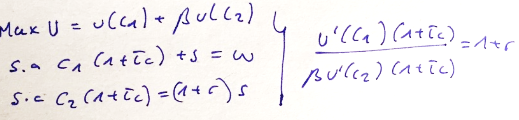 Max U = u(c1) + βu(c2)
s.a c1 (1+τc) + s = w
s.c c2 (1+τc) = (1+r) s
u'(c1) (1+τc) / βu'(c2) (1+τc) = 1+r